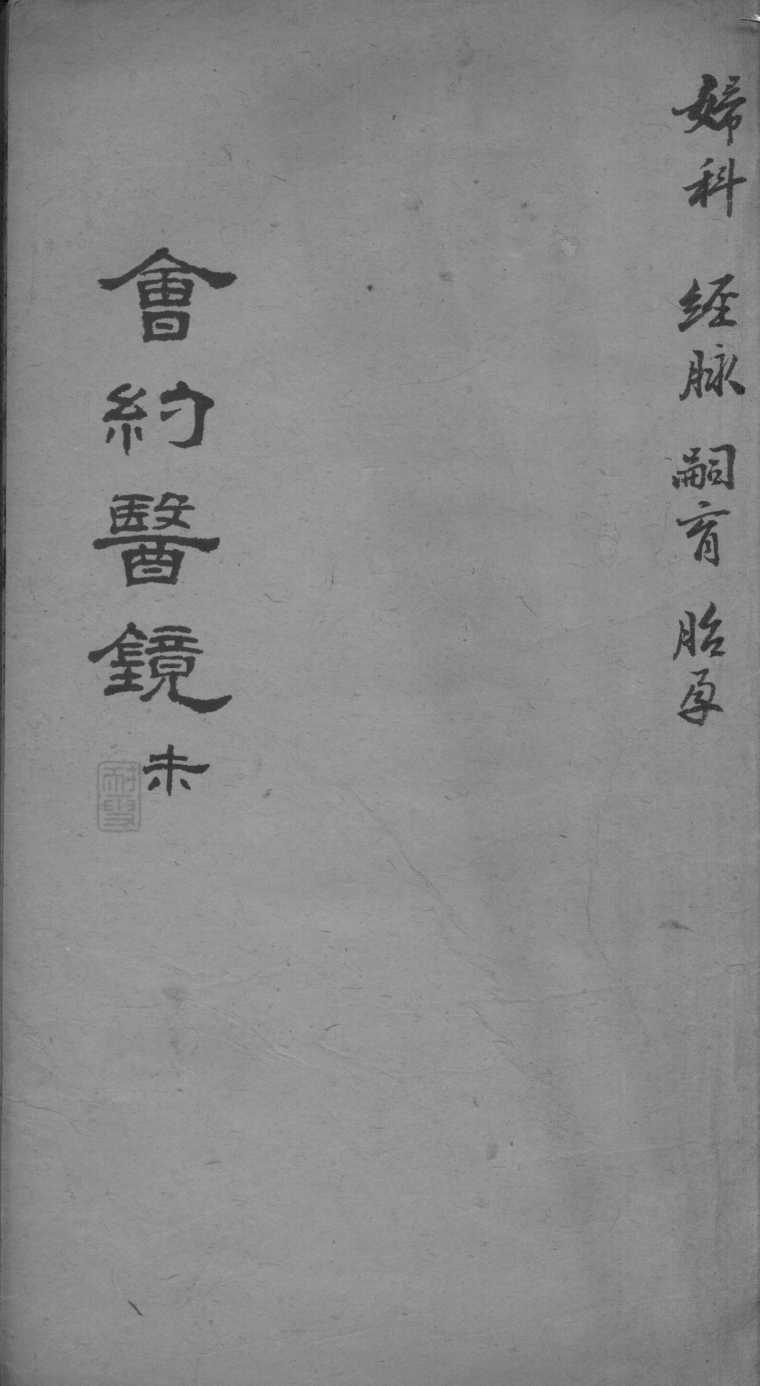 婦科 經脉 嗣育 胎孕
會約醫鏡 未
耐雪